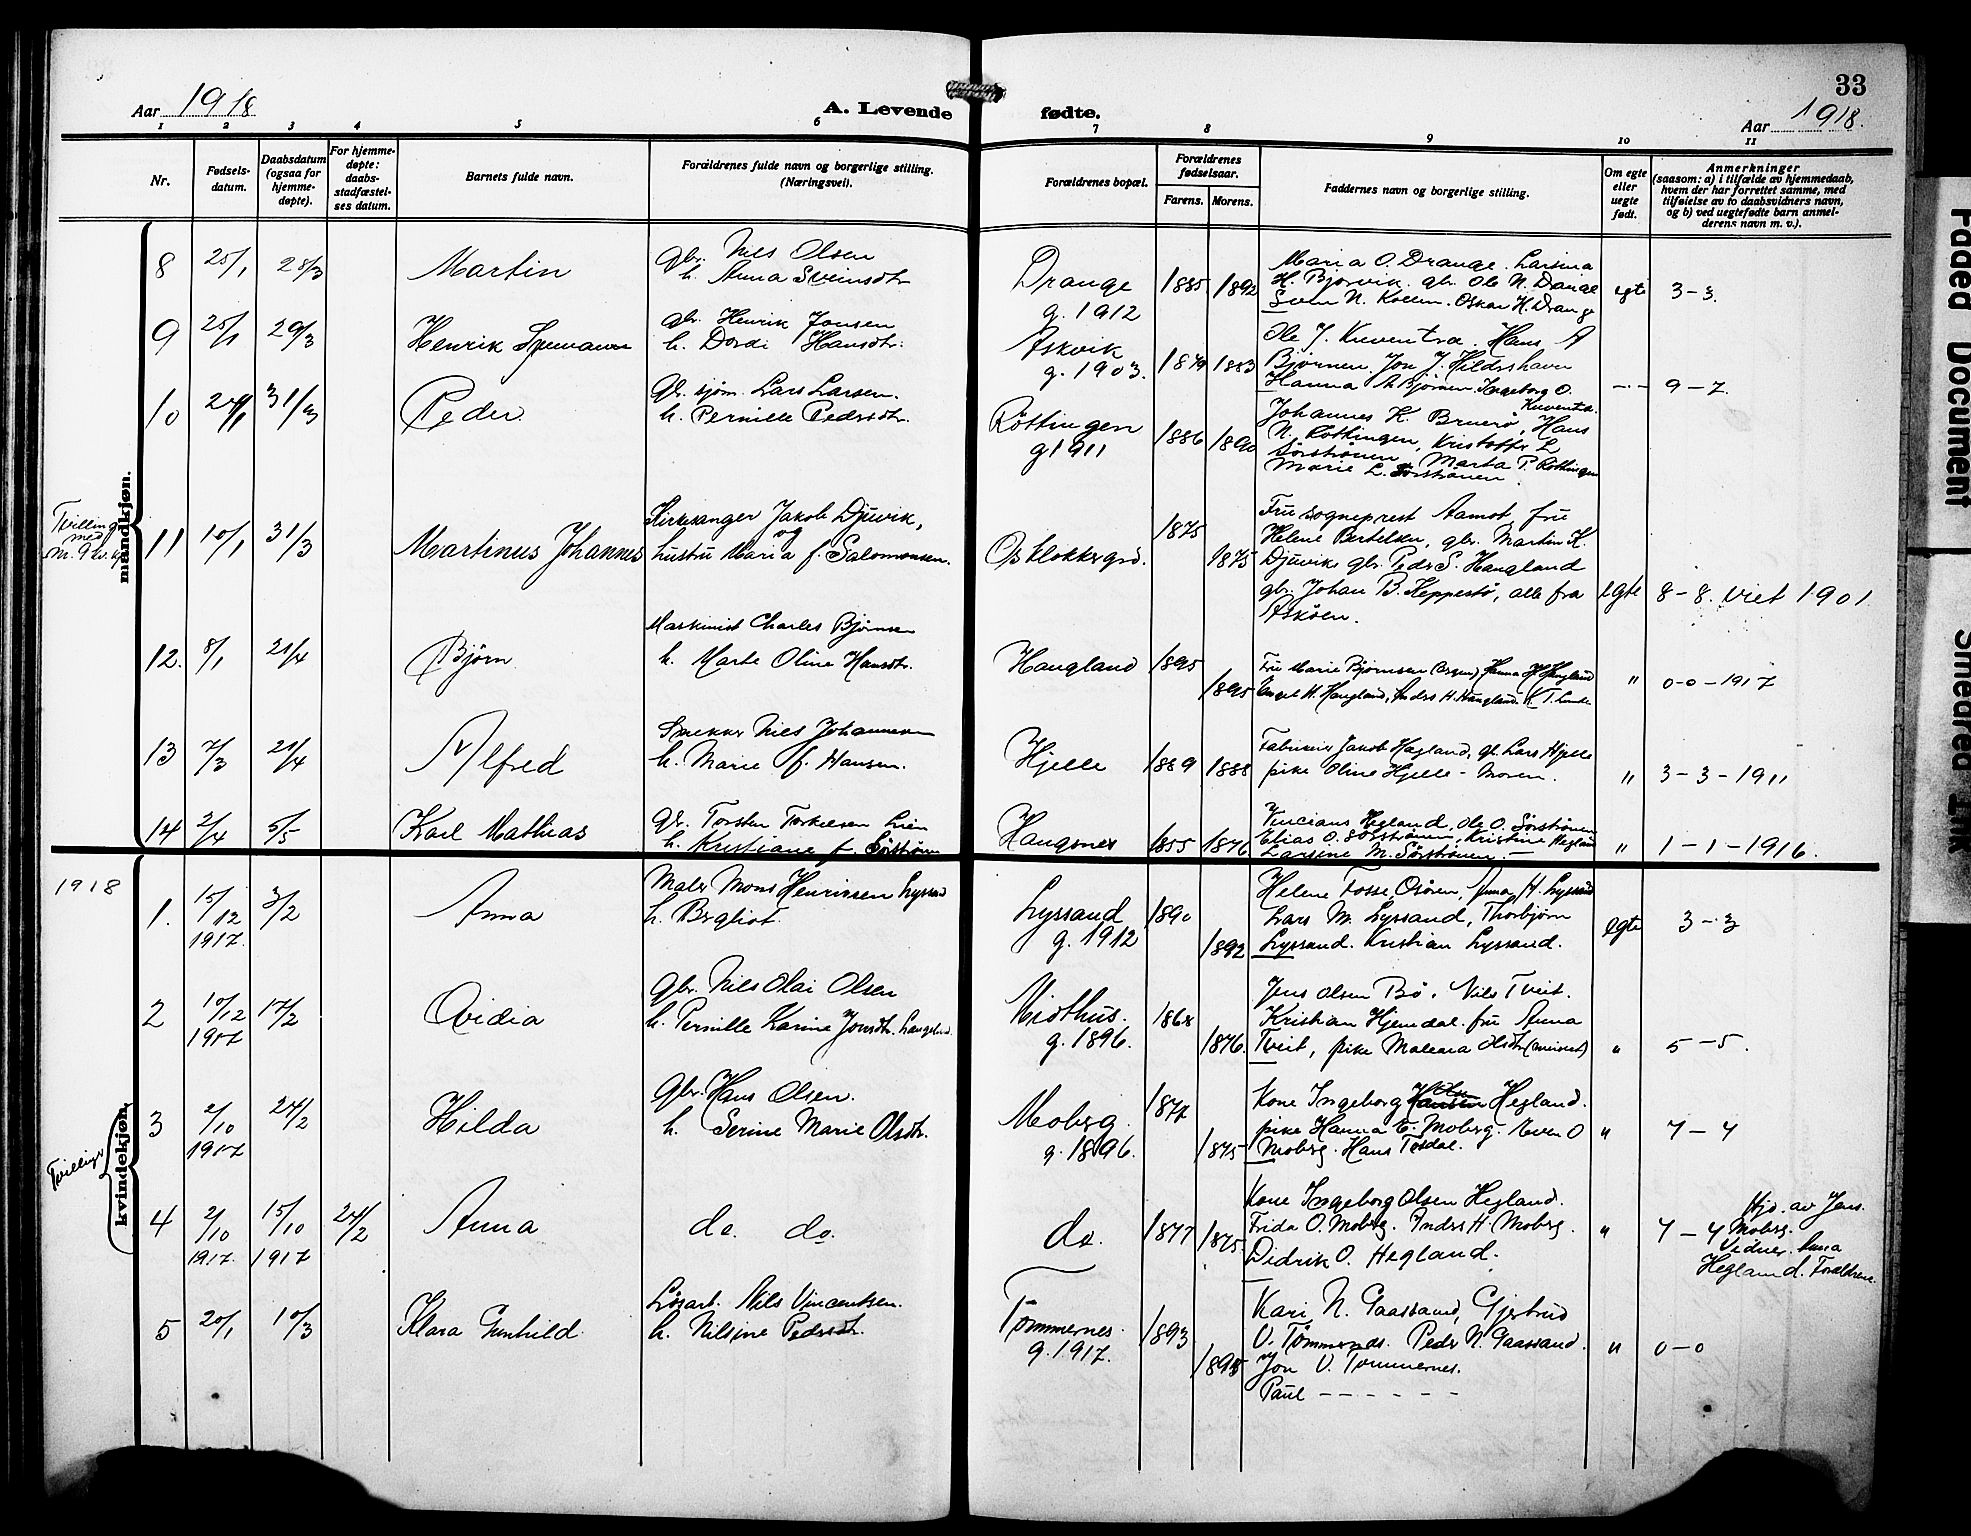 33
Aar 1918
A. Levende fødte.
Aar 1918.
1 2 3 4 5 6 7 8 9 10 11
Nr.
Fødsels-
datum.
Daabsdatum
(ogsaa for
hjemme-
døpte).
For hjemme-
døpte:
daabs-
stadfæstel-
ses datum.
Barnets fulde navn.
Forældrenes fulde navn og borgerlige stilling.
(Næringsvei).
Forældrenes bopæl.
Forældrenes
fødselsaar.
Farens. Morens.
Faddernes navn og borgerlige stilling.
Om egte
eller
uegte
født.
Anmerkninger
(saasom: a) i tilfælde av hjemmedaab,
hvem der har forrettet samme, med
tilføielse av to daabsvidners navn,
og b) ved uegtefødte barn anmel-
derens navn m. v.).
mandkjøn.
8 25/1 28/3 Martin
gbr. Nils Olsen
h. Anna Sveinsdtr
Drange
g. 1912
1885 1892
Maria O. Drange. Larsina
H. Bjørvik. gbr. Ole N. Drange
Sven N. Kollen. Oskar H. Drange
egt 3-3.
9 25/1 29/3 Henrik
gbr. Henrik Jonsen
h. Dordi Hansdtr.
Askvik
g. 1903.
1879 1883
Ole J. Kuventræ. Hans A
Bjørnen. Jon J. Hildershavn
Hanna A Bjørnen. Ingeborg O.
Kuventræ.
-"- 9-7.
10 24/1 31/3 Peder
Gbr. sjøm. Lars Larsen.
h. Pernille Pedersdtr.
Røttingen
g 1911
1886 1890
Johannes K. Bruerø, Hans
N. Røttingen, Kristoffer L
Sørstrønen, Marta P. Røttingen
Marie L. Sørstrønen.
Tvilling
med
nr. 9 kv. kj.
11 10/1 31/3 Martinus Johannes
Kirkesanger Jakob Djuvik,
og
hustru Maria f. Salomonsen.
Os klokkergrd.
1875
1875
Fru sogneprest Aamot fru
Helene Bertelsen, gbr. Martin K.
Djuvik, gbr. Peder S. Haugland
gbr. Johan B. Keppestø, alle fra
Askøen.
egte 8-8. viet 1901
12. 8/1 21/4 Bjørn
Maskinist Charles Bjørnsen
h. Marte Oline Hansdtr.
Haugland 1895
1895
Fru Marie Bjørnsen (Bergen) Hanna H. Haugland
Engel H. Haugland, Anders H. Haugland. K. T. Lunde
" 0-0-1917
13 7/3 21/4 Alfred
Snekker Nils Johannesen
h. Marie f. Hansen.
Hjelle 1889 1888
Fabrikeier Jakob Hagland, gbr. Lars Hjelle
pike Oline Hjelle - Moren.
" 3-3-1911
14 2/4 5/5 Karl Mathias
Gbr. Torsten Torkelsen Lien
h. Kristiane f. Sørstrønen
Haugsnes 1855 1876
Vincians Hegland, Ole O. Sørstrønen
Elias O. Sørstrønen, Kristine Hegland
Larsine M. Sørstrønen.-
" 1-1-1916.
1918
kvindekjøn.
1. 15/12 1917. 3/2 Anna
Maler Mons Henriksen Lyssand
h. Bergliot.
Lyssand
g. 1912
1890
1892
Helene Tosse, Osøren, Anna H. Lyssand
Lars M. Lyssand, Thorbjørn
Lyssand. Kristian Lyssand.
egte 3-3
2 10/12 1917 17/2 Ovidia
Gbr. Nils Olai Olsen
h. Pernille Karine Jonsdtr.
Midthus.
g. 1896.
1868
1876.
Jens Olsen Bø. Nils Tveit.
Kristian Hjemdal. fru Anna
Tveit, pike Malena Olsdtr
" 5-5.
Tvillinger
3 2/10 1917 24/2 Hilda
Gbr. Hans Olsen.
h. Serine Marie Olsdtr.
Moberg
g. 1896.
1877
1875
Kone Ingeborg Hansen Olsen Hegland.
pike Hanna E. Moberg. Sven O
Moberg. Hans Tøsdal.
" 7-4
4 2/10 1917. 15/10 1917 24/2 Anna
do. do.
do. 1877 1875.
Kone Ingeborg Olsen Hegland.
Frida O. Moberg. Anders H. Moberg.
Didrik O. Hegland.
" 7-4
Hjd. av Jens
Moberg.
Vidner. Anna
Hegland. Forældrene.
5 20/1 10/3 Klara Gunhild.
Løsarb. Nils Vincentsen.
h. Nilsine Pedersdtr.
Tømmernes.
g. 1917.
1893
1895
Kari N. Gaassand, Gjertrud
V. Tømmernes. Peder N. Gaassand.
Jon V. Tømmernes.
Paul - - - - - -
" 0-0
Faded Document
Smeared Ink